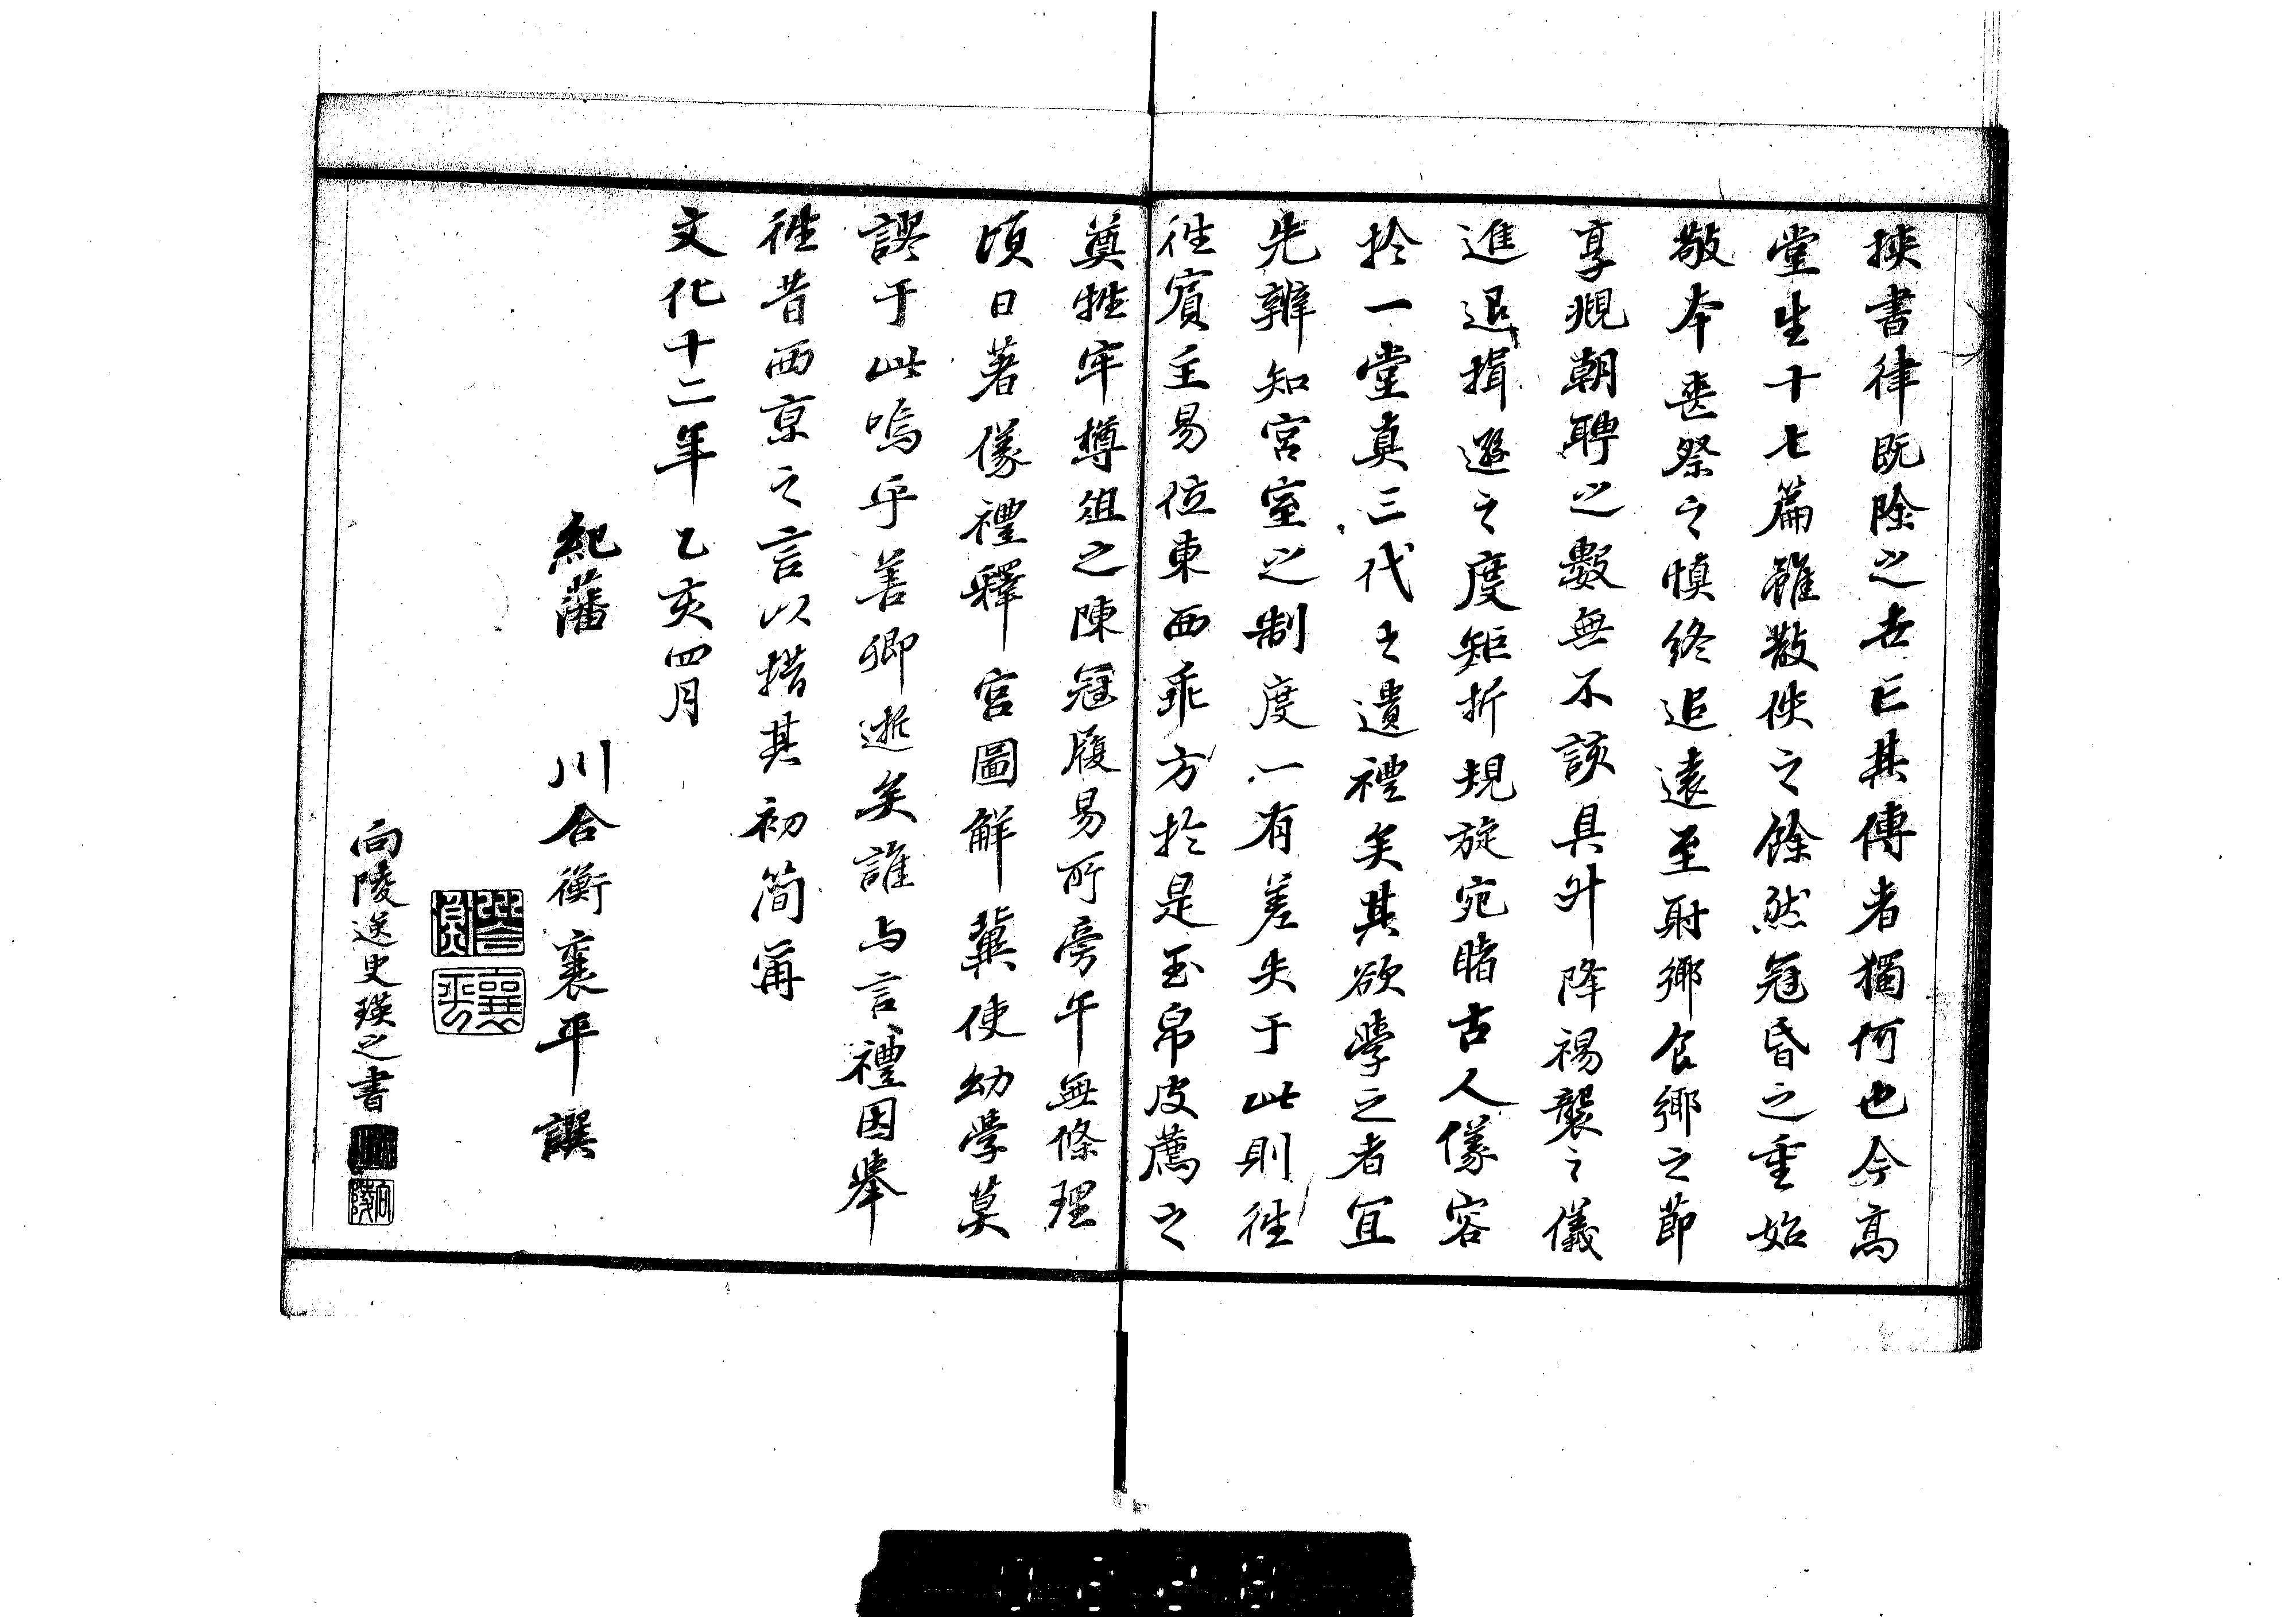 挾書律既除之世亡其傳者獨何也今高
堂生十七篇雖散佚之餘然冠昏之重始
敬本喪祭之慎終追遠至射鄉食鄉之節
享覜朝聘之數無不該具升降裼襲之儀
進退揖遜之度矩折規旋宛睹古人儀容
於一堂真三代之遺禮矣其欲學之者宜
先辨知宮室之制度一有差失于此則往
往賓主易位東西乖方於是玉帛皮薦之
奠牲牢樽俎之陳冠履易所旁午無條理
頃日著儀禮釋宮圖解冀使幼學莫
謬于此嗚乎善卿逝矣誰与言禮因舉
往昔西京之言以措其初簡甯
文化十二年乙亥四月
紀藩 川合衡襄平譔
襄平
向陵逸史瑛之書
向陵